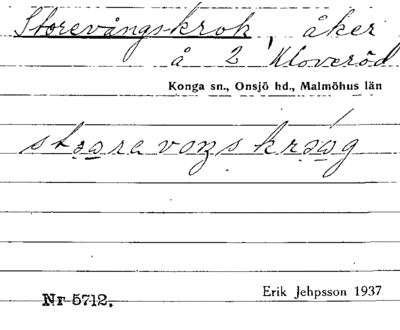 Storevångs-krok, åker
å 2 Kloveröd
Konga sn., Onsjö hd., Malmöhus län
Nr 5712.
Erik Jehpsson 1937